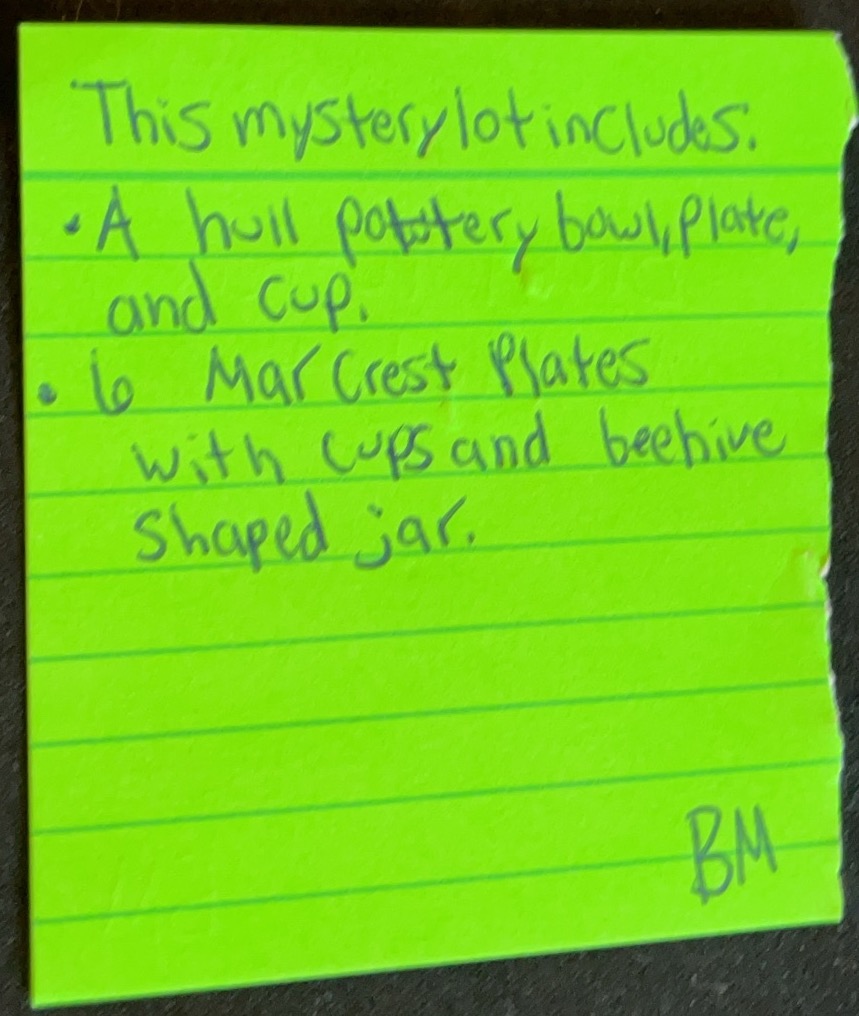 This mystery lot includes.
• A hull pottery bowl, plate,
and cup.
• 6 Mar Crest Plates
with cups and beehive
shaped jar.
BM